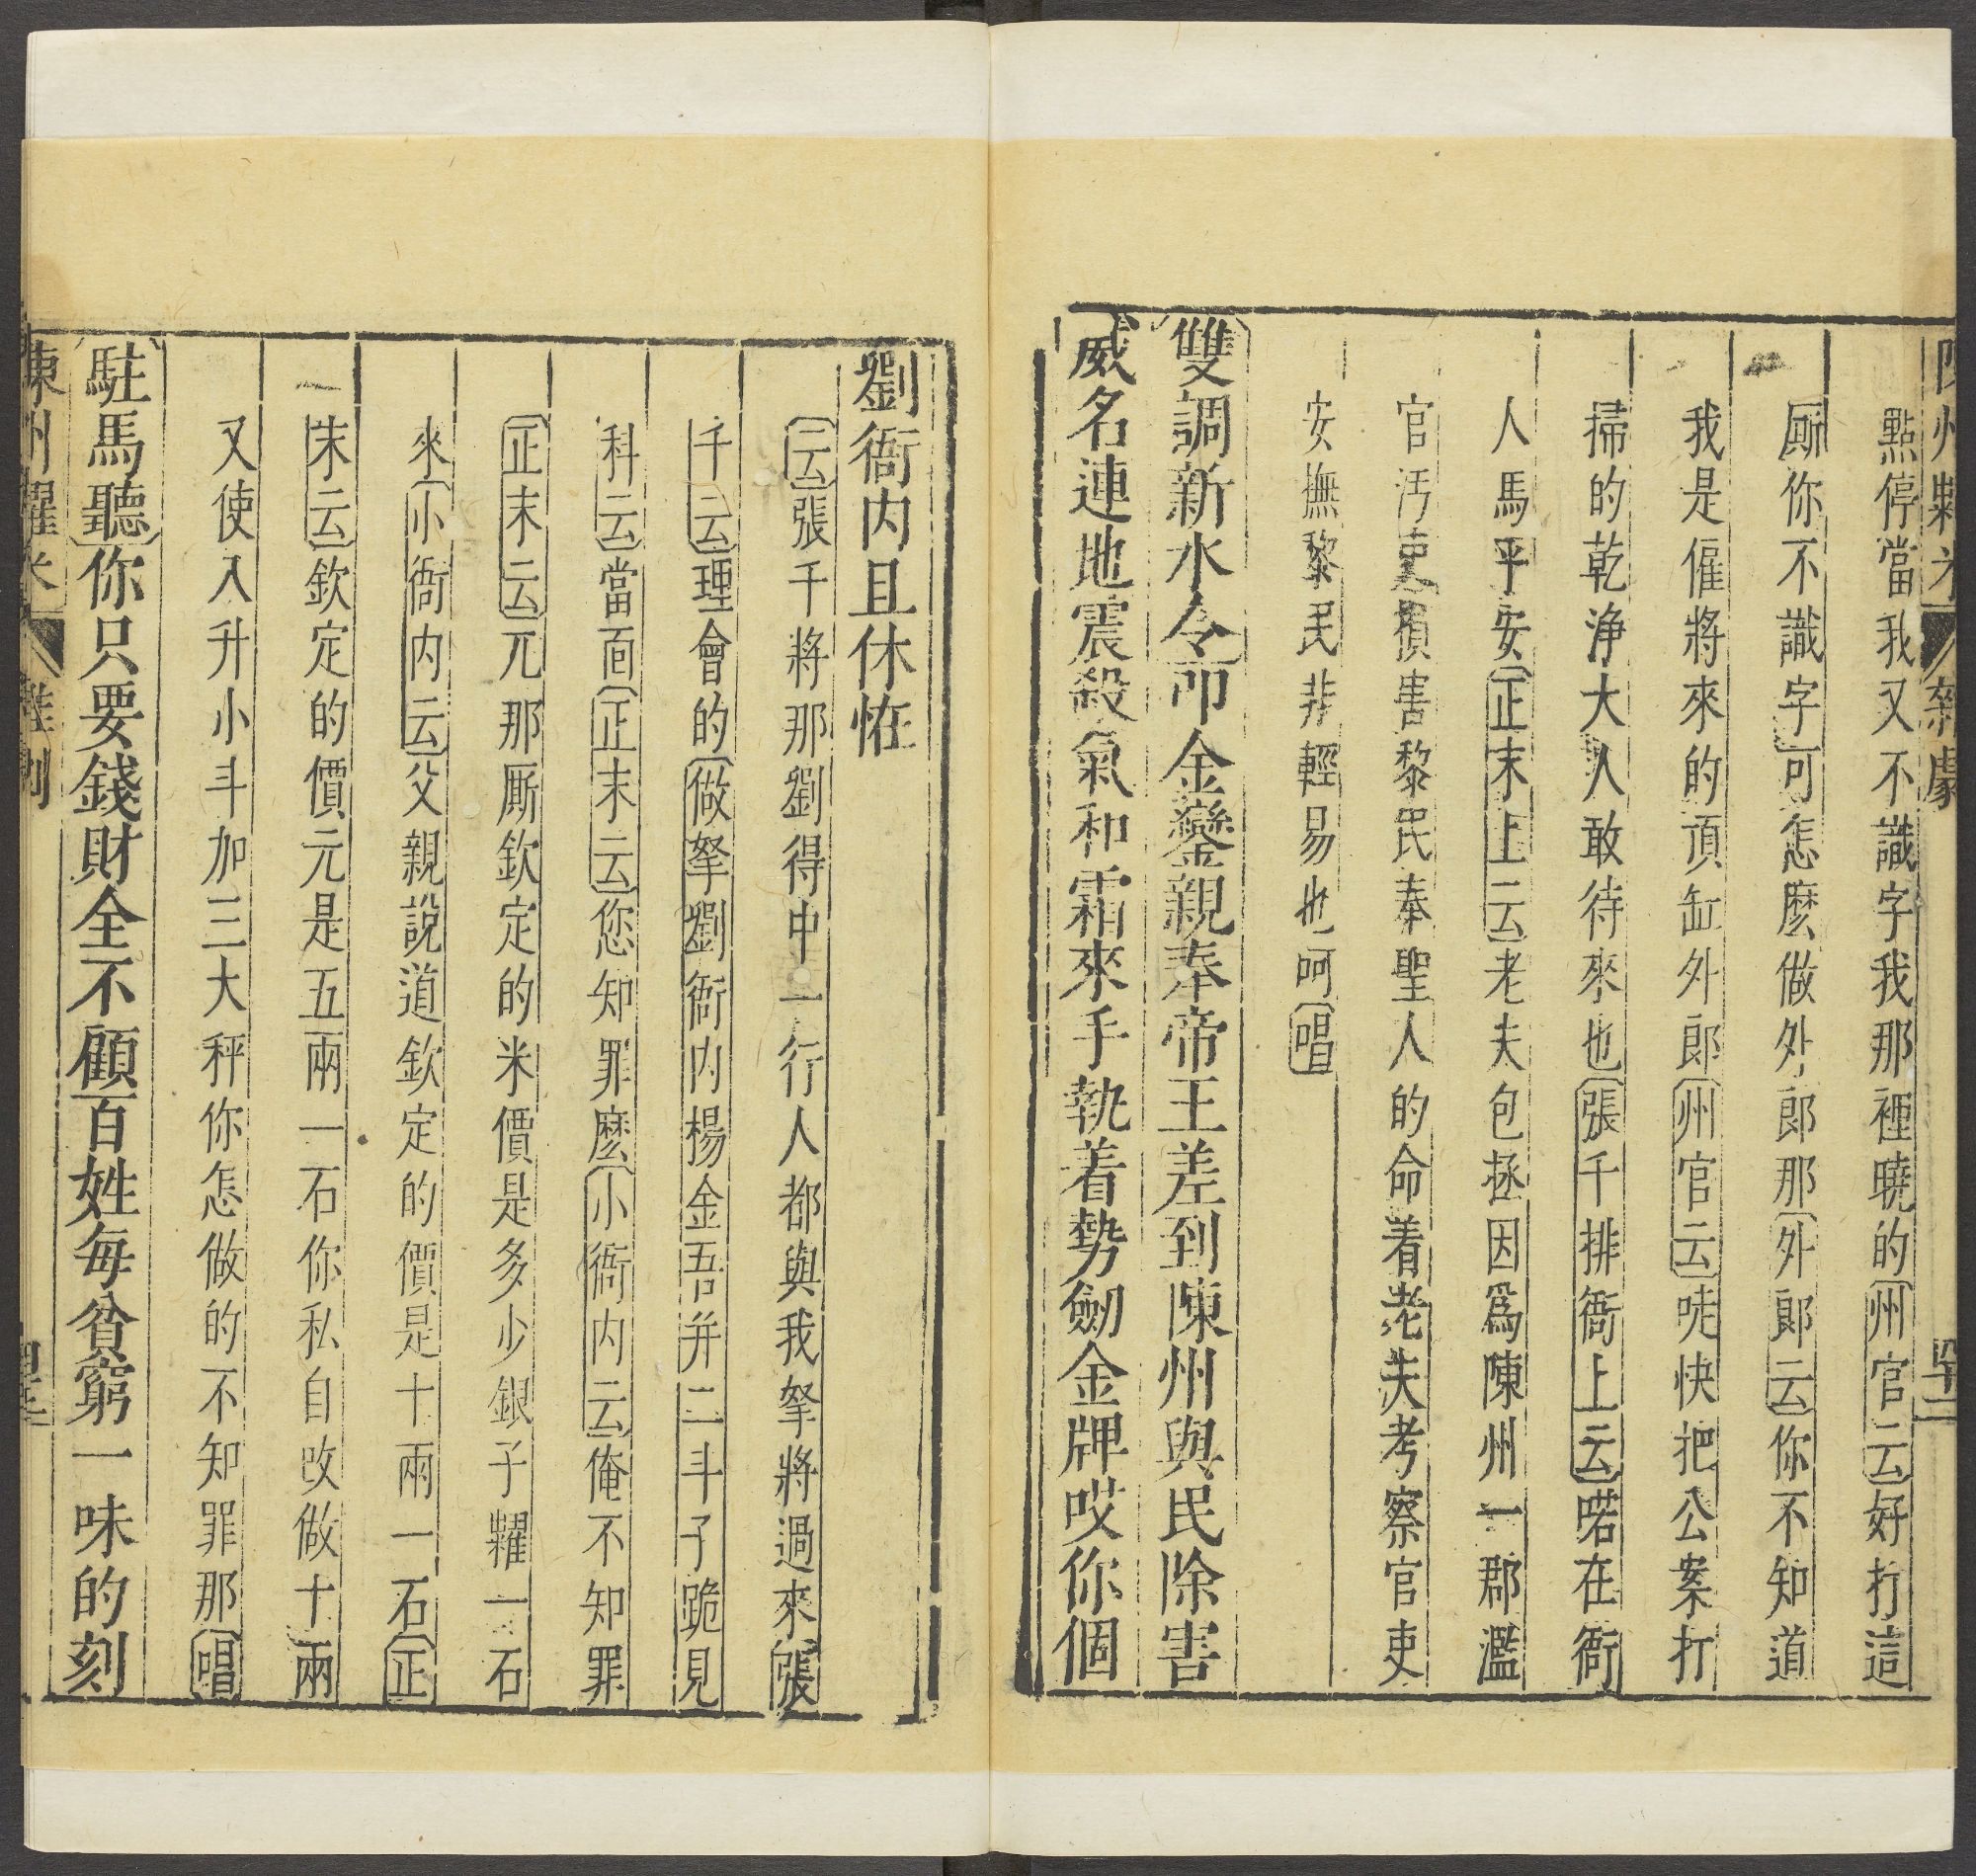 陳州糶米 雜劇 四十二
點停當我又不識字我那裡曉的州官云好打這
厮你不識字可怎麽做外郎那外郎云你不知道
我是僱將來的頂缸外郎州官云㖿快把公案打
掃的乾淨大人敢待來也張千排衙上云喏在衙
人馬平安正末上云老夫包拯因爲陳州一郡濫
官汚吏損害黎民奉聖人的命着老夫考察官吏
安撫黎民非輕易也呵唱
雙調新水令叩金鑾親奉帝王差到陳州與民除害
威名連地震殺氣和霜來手執着勢劒金牌哎你個
劉衙内且休恠
云張千將那劉得中一行人都與我拏將過來張
千云理會的做拏劉衙内楊金吾并二斗子跪見
科云當面正末云您知罪麽小衙内云俺不知罪
正末云兀那厮欽定的米價是多少銀子糶一石
來小衙内云父親說道欽定的價是十兩一石正
末云欽定的價元是五兩一石你私自改做十兩
又使入升小斗加三大秤你怎做的不知罪那唱
駐馬聽你只要錢財全不顧百姓每貧窮一味的刻
陳州糶米 雜劇